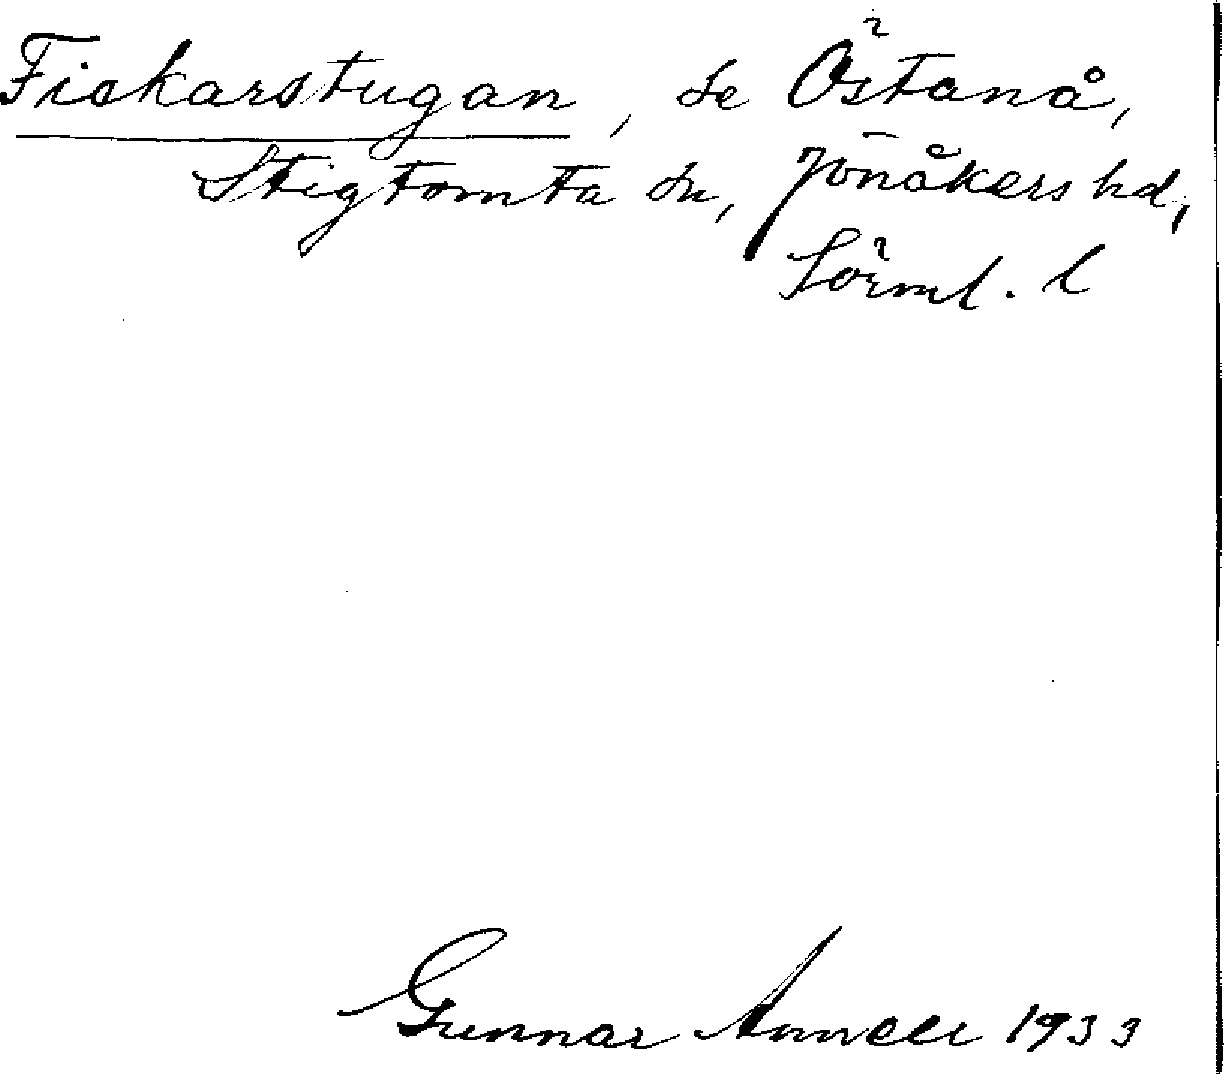 Fiskarstugan, se Östanå,
Stigtomta sn, Jönåkers hd,
Sörml. l
Gunnar Annell 1933